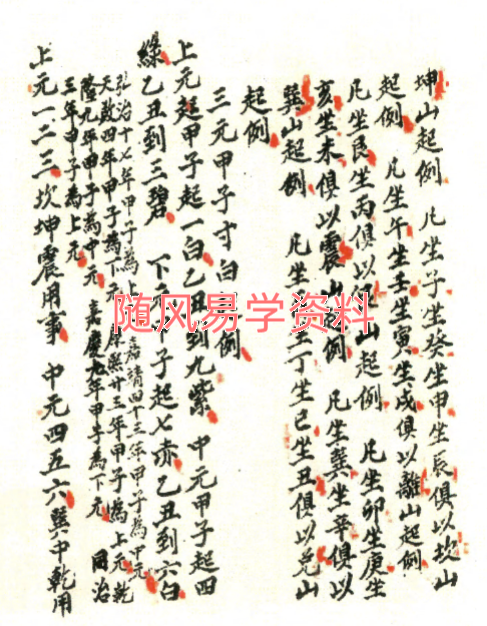 坤山起例　凡坐子坐癸坐申坐辰俱以坎山
起例　凡坐午坐壬坐寅坐戌俱以離山起例
凡坐艮坐丙俱以艮山起例　凡坐卯坐庚坐
亥坐未俱以震山起例　凡坐巽坐辛俱以
巽山起例　凡坐酉坐丁坐巳坐丑俱以兌山
起例
三元甲子寸白起例
上元起甲子起一白乙丑到九紫　中元甲子起四
綠乙丑到三碧　下元甲子起七赤乙丑到六白
弘治十七年甲子為上元嘉靖四十三年甲子為中元
天啟四年甲子為下元康熙廿三年甲子為上元乾
隆九年甲子為中元嘉慶九年甲子為下元　同治
三年甲子為上元
上元一二三坎坤震用事　中元四五六巽中乾用
随风易学资料